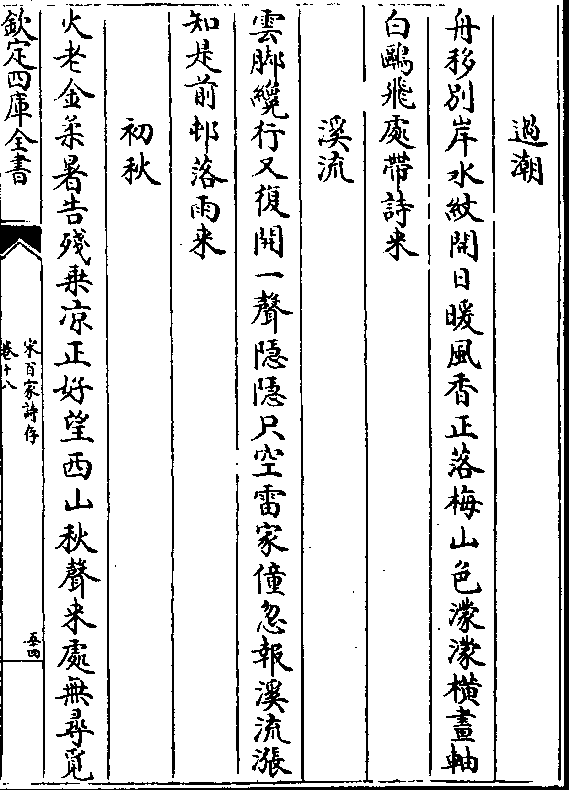 過潮
舟移別岸水紋開日暖風香正落梅山色濛濛橫畫軸
白鷗飛處帶詩來
溪流
雲脚纔行又復開一聲隱隱尺空雷家僮忽報溪流漲
知是前邨落雨来
初秋
火老金柔暑告殘乗凉正好望西山秋聲来處無尋覓
欽定四庫全書
宋百家詩存
卷十八
五四